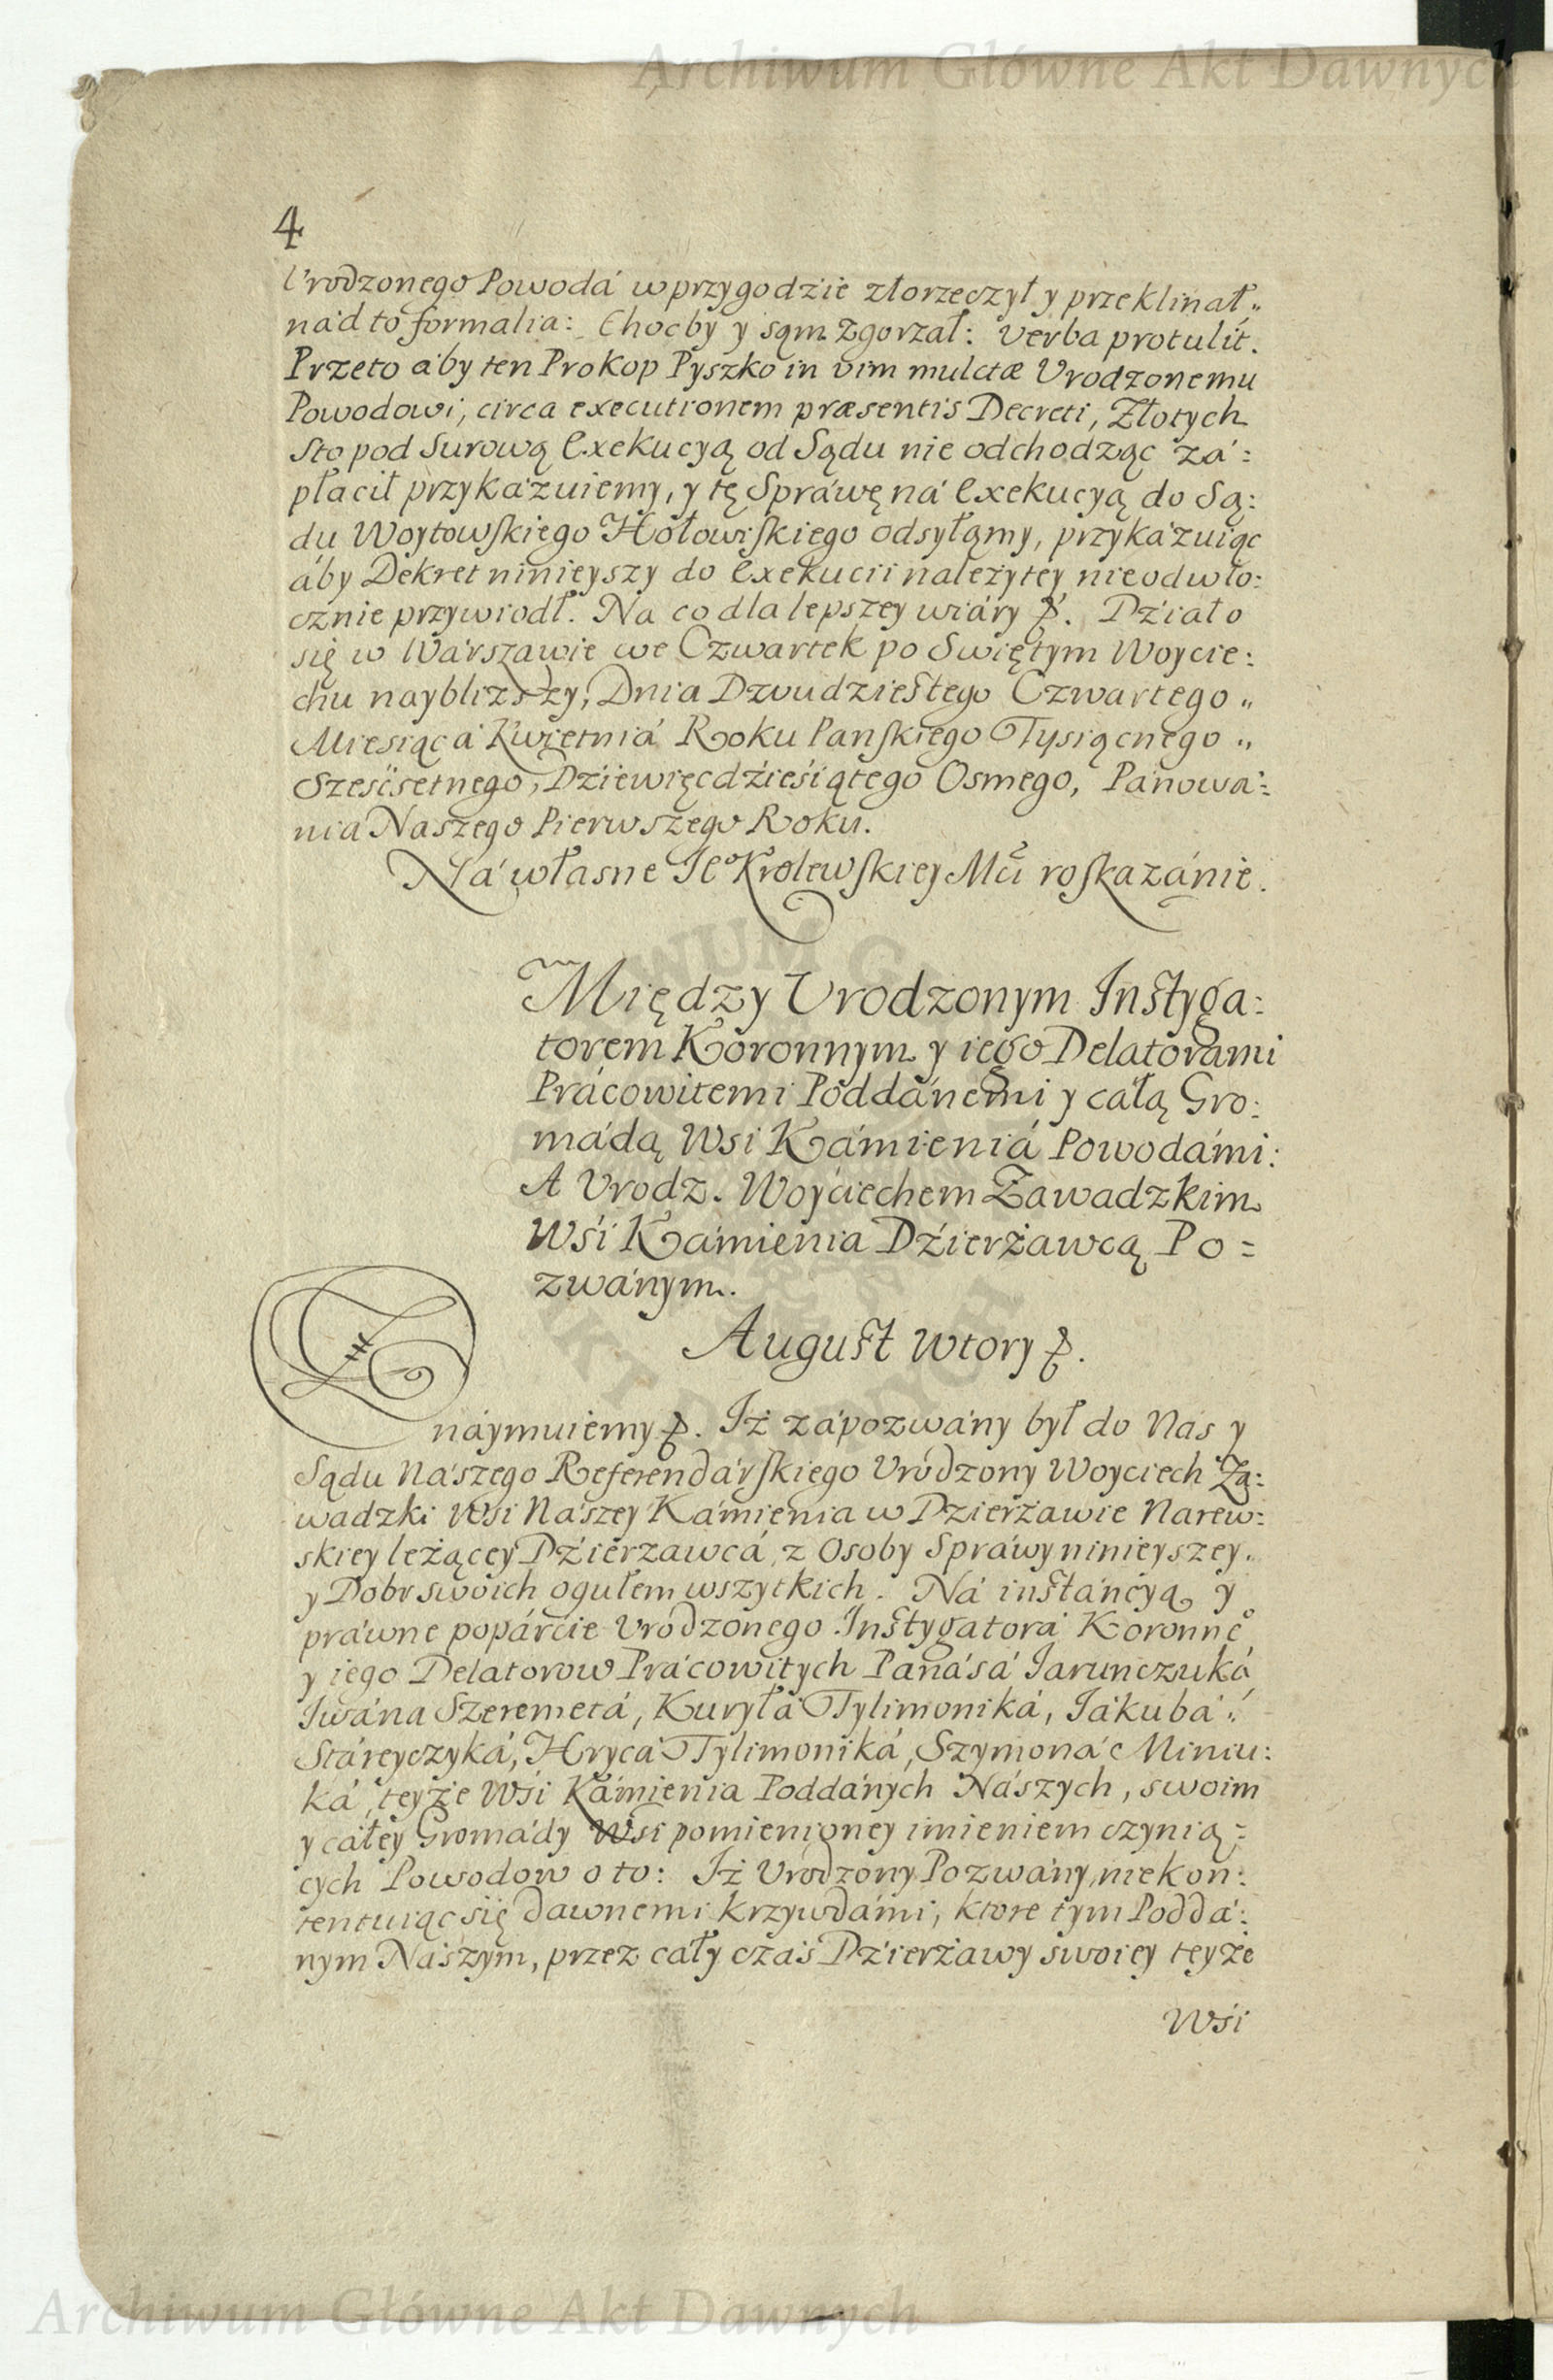 Archiwum Główne Akt Dawnych
4
Urodzonego Powodá w przygodzie złorzeczył y przeklinał„
nád to formalia: Choćby y sąm zgorzał: verba protulit.
Przeto áby ten Prokop Pyszko in vim mulctæ Urodzonemu
Powodowi, circa executionem præsentis Decreti, Złotych
Sto pod surową Exekucyą od Sądu nie odchodząc zá:
płacił przykázuiemy, y tę Spráwę ná Exekucyą do Są:
du Woytowskiego Hołowiskiego odsyłámy, przykázuiąc
áby Dekret ninieyszy do Exekucii należytey nieodwło:
cznie przywiodł. Na co dla lepszey wiáry &. Działo
się w Wárszawie we Czwartek po Swiętym Woycie:
chu naybliższy, Dnia Dwudziestego Czwartego„
Miesiącá Kwietniá Roku Panskiego Tysiącnego„
Szescsetnego, Dziewięcdziesiątego Osmego, Pánowá:
nia Naszego Pierwszego Roku.
Ná własne Je° Krolewskiey Mći roskazánie.
Między Urodzonym Instyga:
torem Koronnym y iego Delatorámi
Prácowitemi Poddánemi y całą Gro:
mádą Wsi Kámieniá Powodámi:
A Urodz. Woyciechem Zawadzkim
Wśi Kámienia Dźierżawcą Po=
zwánym.
August Wtory &.
Znáymuiemy &. Iż zápozwány był do Nas y
Sądu Nászego Referendárskiego Urodzony Woyciech Zá:
wadzki Wsi Nászey Kámienia w Dzierżawie Narew:
skiey leżącey Dźierzawcá, z Osoby Spráwy ninieyszey„
y Dobr swoich ogułem wszytkich. Ná instáncyą y
práwne popárcie Urodzonego Instygatorá Koronne°
y iego Delatorow Prácowitych Panásá Jarunczuká
Iwána Szeremetá, Kuryłá Tylimoniká, Jákubá„
Stáreyczyká, Hrycá Tylimoniká, Szymoná Miniu:
ká, teyże Wśi Kámienia Poddánych Nászych, swoim
y całey Gromády Wsi pomienioney imieniem czynią=
cych Powodow o to: Iż Urodzony Pozwány, nie kon:
tentuiąc się dawnemi krzywdámi, ktore tym Poddá:
nym Nászym, przez cáły czas Dźierżawy swoiey teyże
Wśi
Archiwum Główne Akt Dawnych